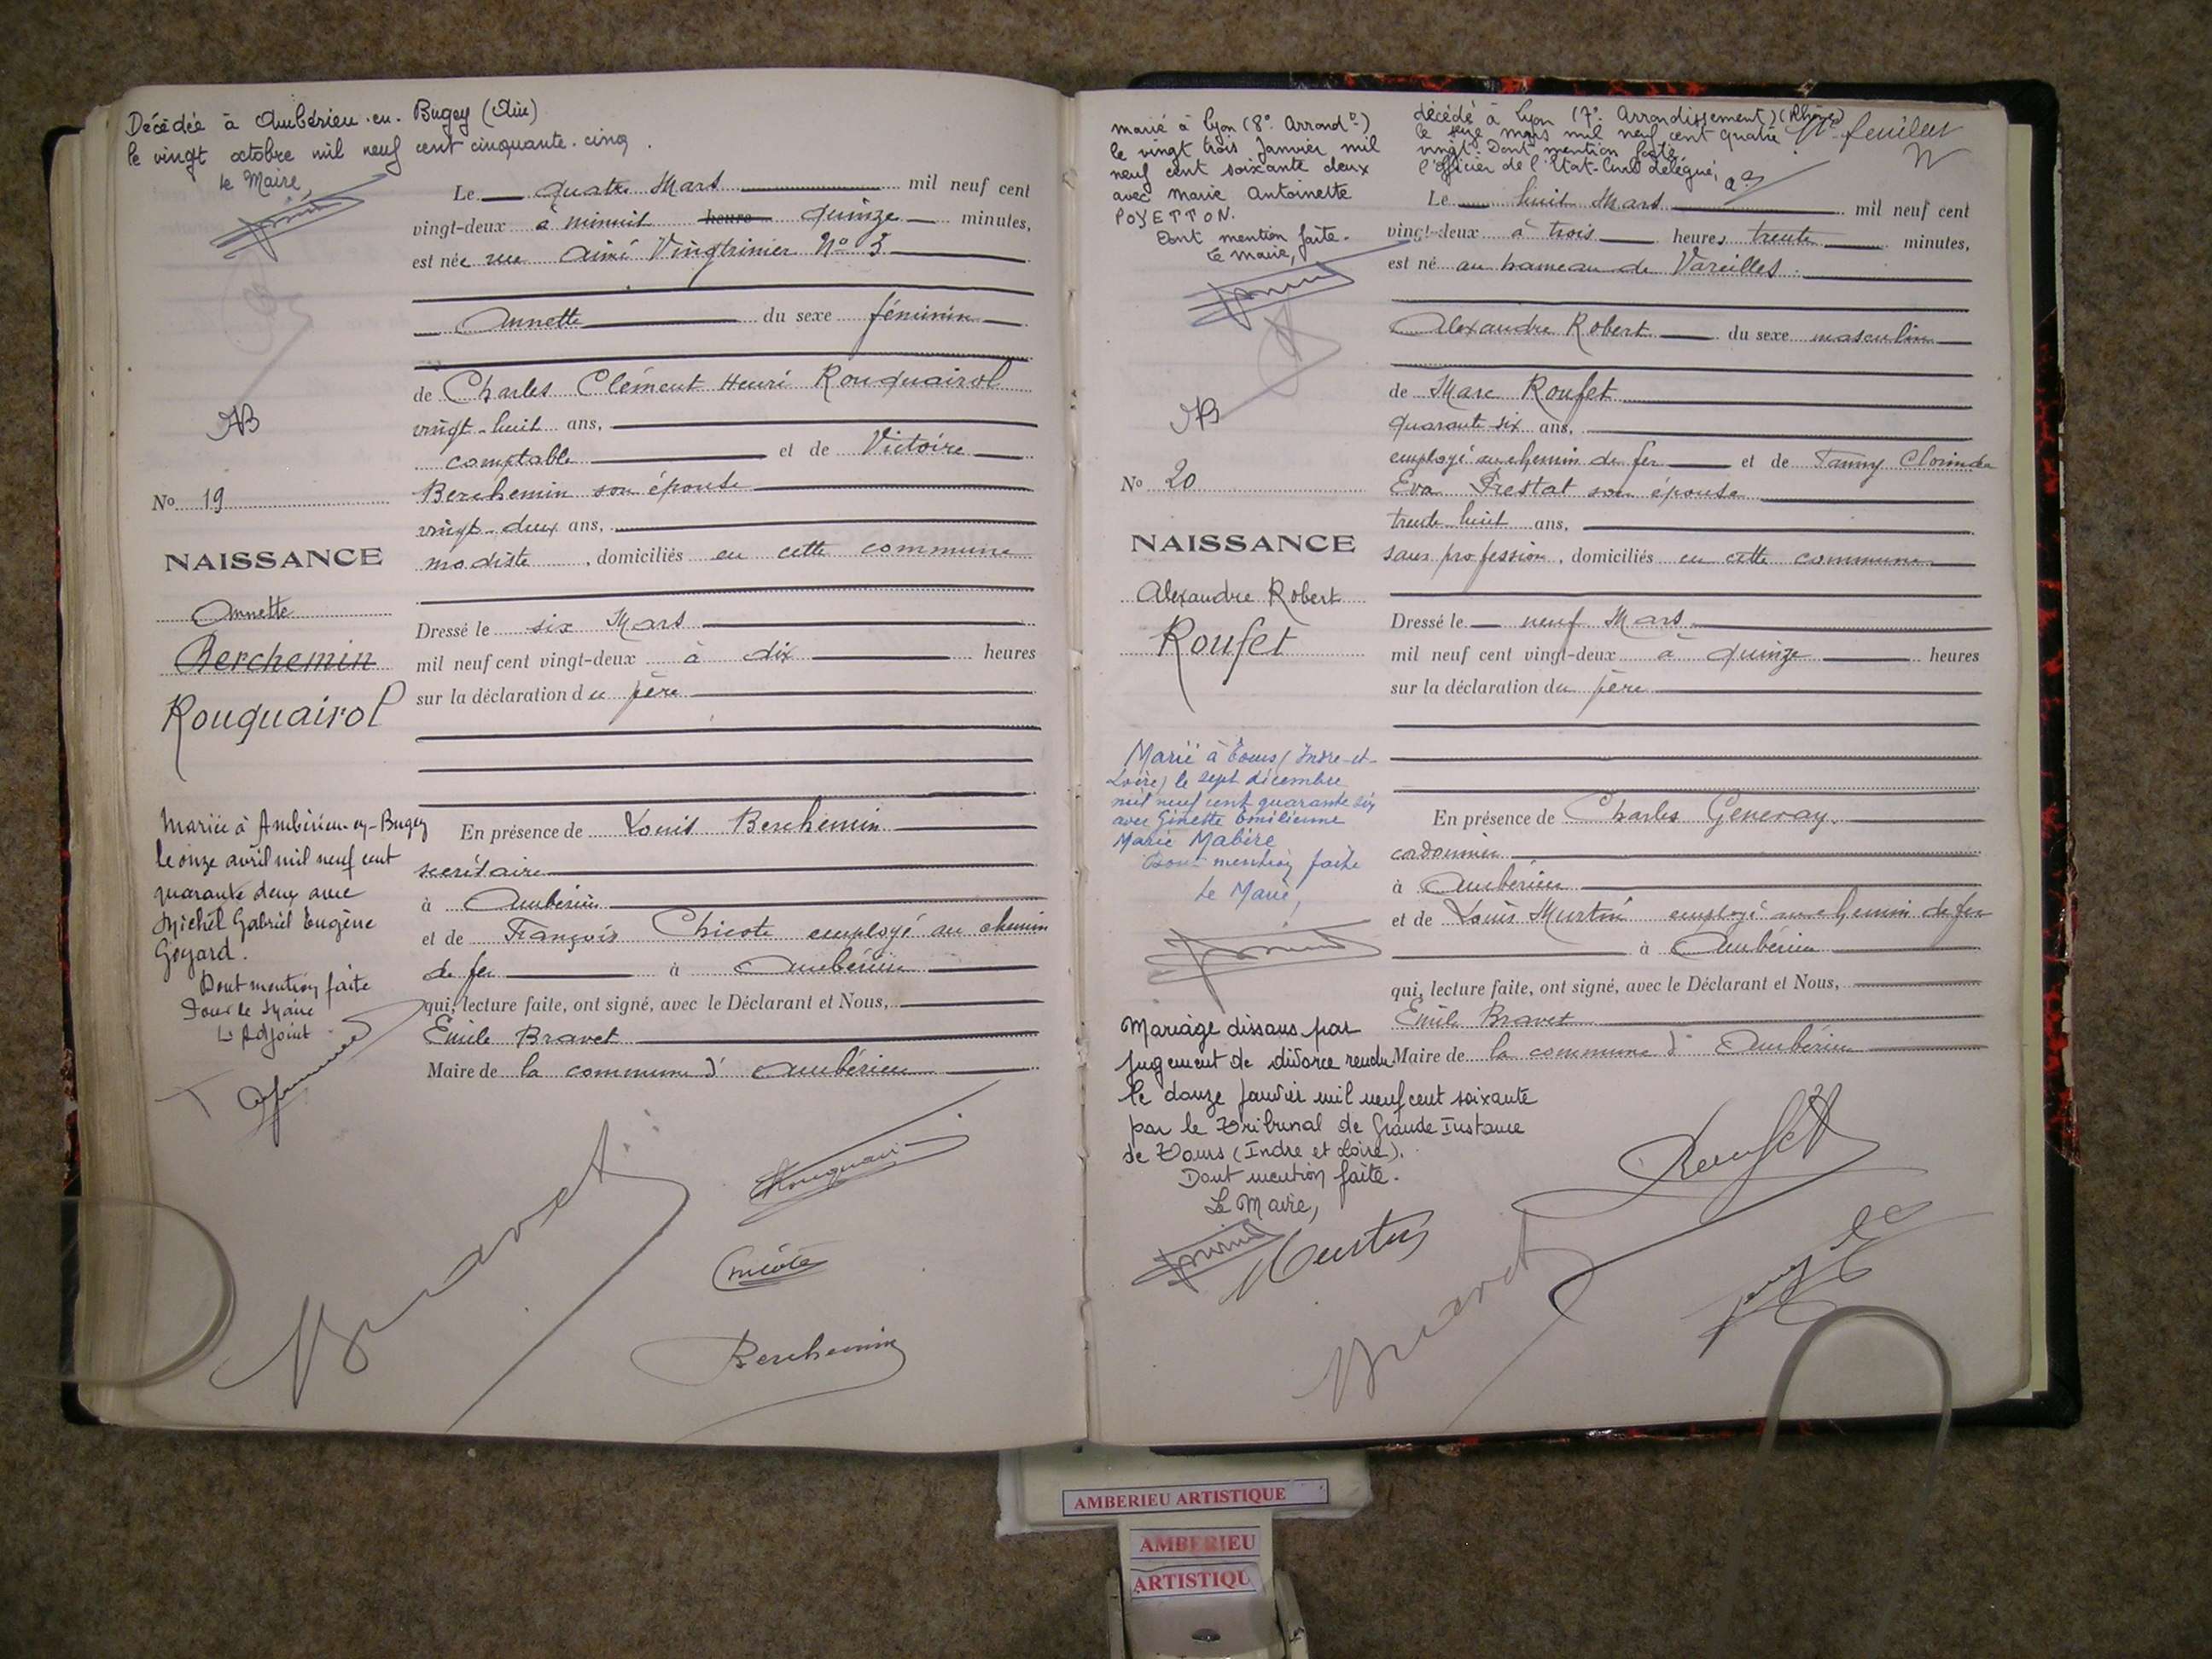 Décédée à Ambérieu-en-Bugey (Ain)
le vingt octobre mil neuf cent cinquante-cinq.
le Maire,
AB
No 19
NAISSANCE
Annette
Berchemin
Rouquairol
Mariée à Ambérieu-en-Bugey
le onze avril mil neuf cent
quarante deux avec
Michel Gabriel Eugène
Goyard.
Dont mention faite
Pour le Maire
L'Adjoint
Le quatre Mars mil neuf cent
vingt-deux à minuit heure quinze minutes,
est née rue Aimé Vingtrinier No 3
Annette du sexe féminin
de Charles Clément Henri Rouquairol
vingt-huit ans,
comptable et de Victoire
Berchemin son épouse
vingt-deux ans,
modiste, domiciliés en cette commune
Dressé le six Mars
mil neuf cent vingt-deux à dix heures
sur la déclaration du père
En présence de Louis Berchemin
secrétaire
à Ambérieu
et de François Chicote employé au chemin
de fer à Ambérieu
qui, lecture faite, ont signé, avec le Déclarant et Nous,
Emile Bravet
Maire de la commune d'Ambérieu
Rouquairol
Chicote
Bravet
Berchemin
marié à Lyon (8e Arrondt)
le vingt trois Janvier mil
neuf cent soixante deux
avec Marie Antoinette
POYETTON.
Dont mention faite.
Le Maire,
décédé à Lyon (7e Arrondissement) (Rhône)
le seize mars mil neuf cent quatre
vingt. Dont mention faite,
l'officier de l'Etat-Civil délégué,
feuillet
AB
No 20
NAISSANCE
Alexandre Robert
Roufet
Marié à Tours (Indre-et-
Loire) le sept décembre
mil neuf cent quarante six
avec Ginette Emilienne
Marie Mabire
Dont mention faite
Le Maire,
Mariage dissous par
jugement de divorce rendu
le douze Janvier mil neuf cent soixante
par le Tribunal de Grande Instance
de Tours (Indre et Loire).
Dont mention faite.
Le Maire,
Le huit Mars mil neuf cent
vingt-deux à trois heures trente minutes,
est né au hameau de Vareilles.
Alexandre Robert du sexe masculin
de Marc Roufet
quarante six ans,
employé au chemin de fer et de Fanny Clorinda
Eva Prestat son épouse
trente huit ans,
sans profession, domiciliés en cette commune
Dressé le neuf Mars
mil neuf cent vingt-deux à quinze heures
sur la déclaration du père
En présence de Charles Generay.
cordonnier
à Ambérieu
et de Louis Murtin employé au chemin de fer
à Ambérieu
qui, lecture faite, ont signé, avec le Déclarant et Nous,
Emile Bravet
Maire de la commune d'Ambérieu
Roufet
Murtin
Bravet
AMBERIEU ARTISTIQUE
AMBERIEU
ARTISTIQU